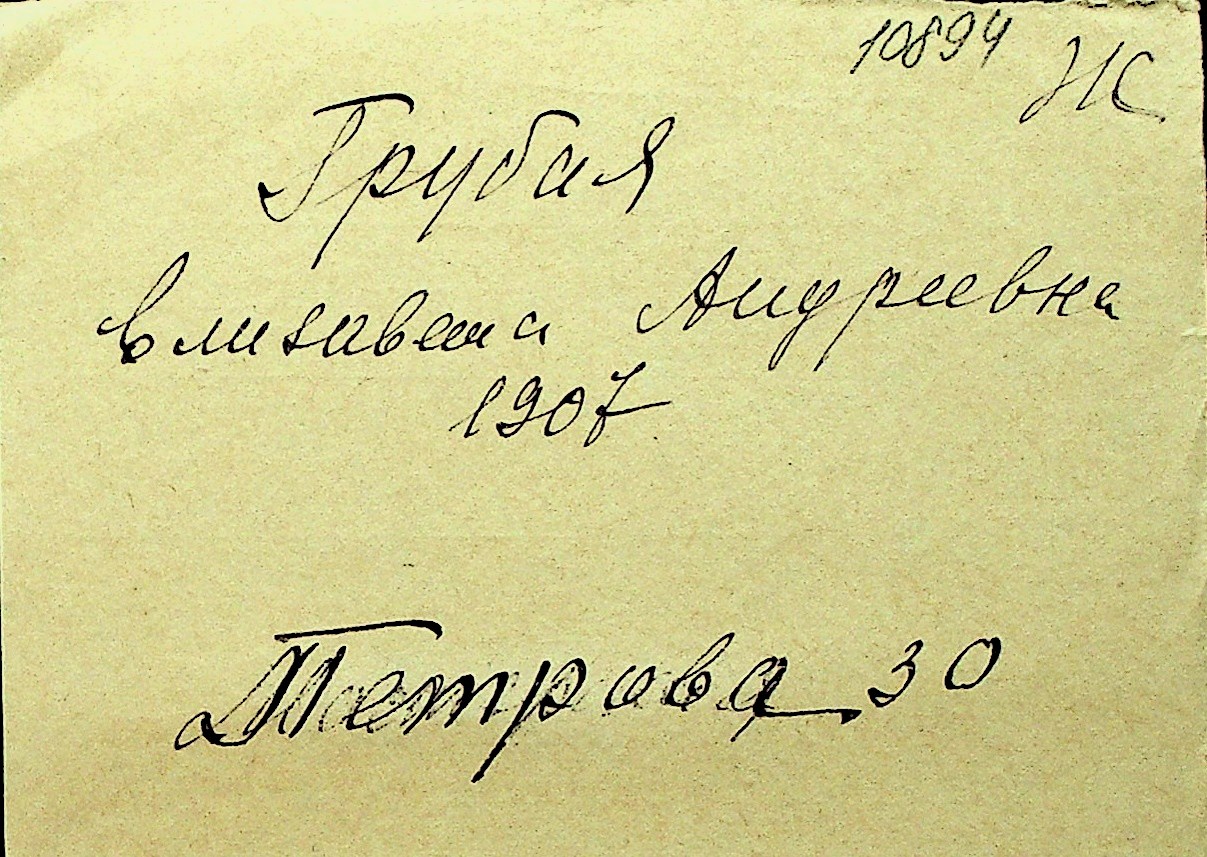 10894 Ж
Грубая
Елизавета Андреевна
1907
Петрова 30